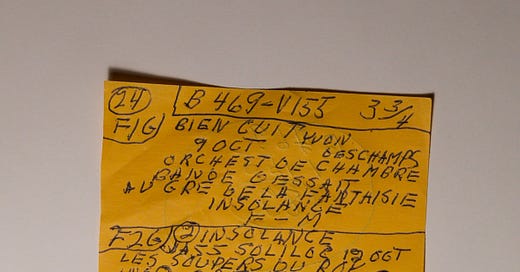 24 B 469-V155 3 3/4
F1G BIEN CUIT YVON
9 OCT DESCHAMPS
ORCHEST DE CHAMBRE
BANDE DESSAIT
AU GRE DE LA FANTAISIE
INSOLANCE
F-M
F2G 2 INSOLANCE
SOLILOG 19 OCT
LES SOUPERS DU ROY